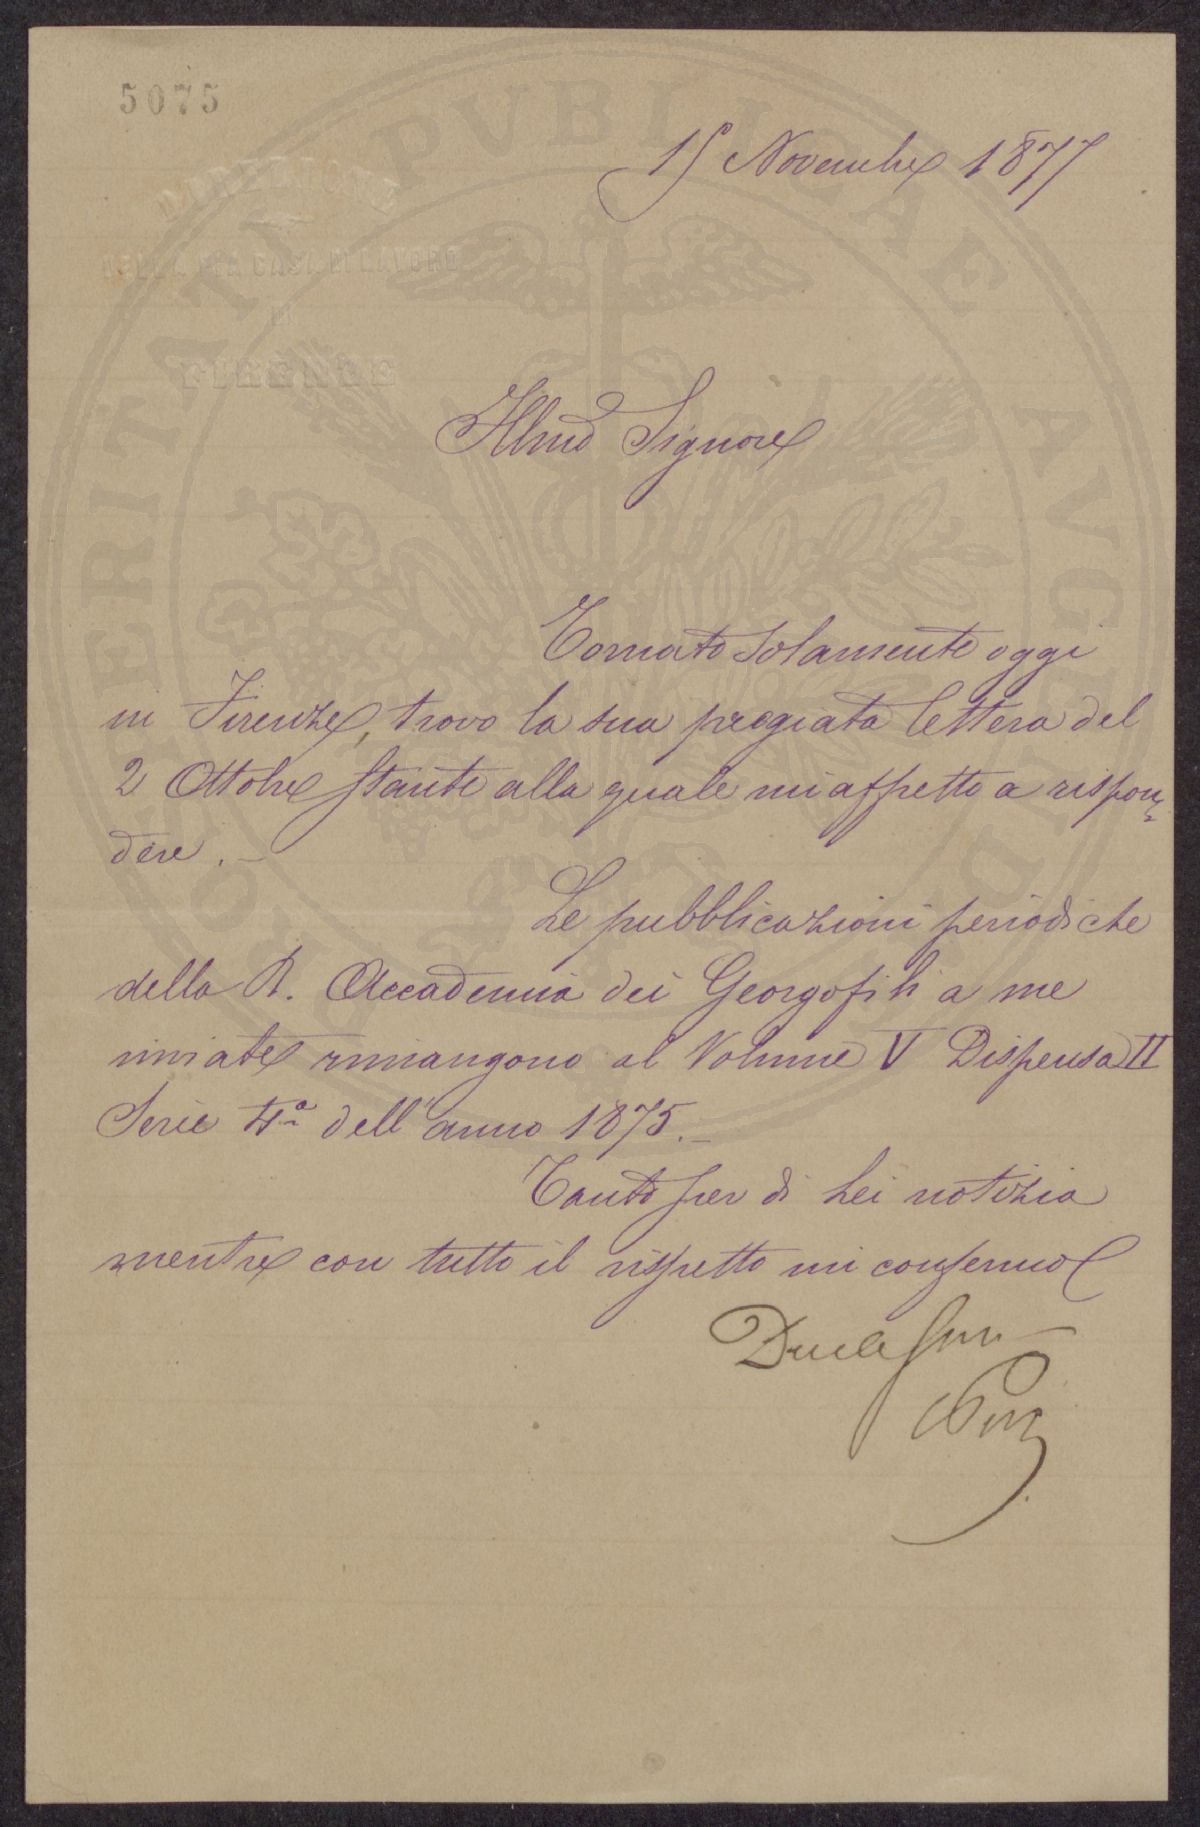 5075
15 Novembre 1877
DIREZIONE
DELLA PIA CASA DI LAVORO
DI
FIRENZE
Illmo Signore
Tornato solamente oggi
in Firenze, trovo la sua pregiata lettera del
2 Ottobre stante alla quale mi affretto a rispon=
dere. —
Le pubblicazioni periodiche
della R. Accademia dei Georgofili a me
inviate rimangono al Volume V Dispensa II
Serie 4ª dell'anno 1875. —
Tanto per di Lei notizia
mentre con tutto il rispetto mi confermo
PROSPERITATI PVBLICAE AVGENDAE